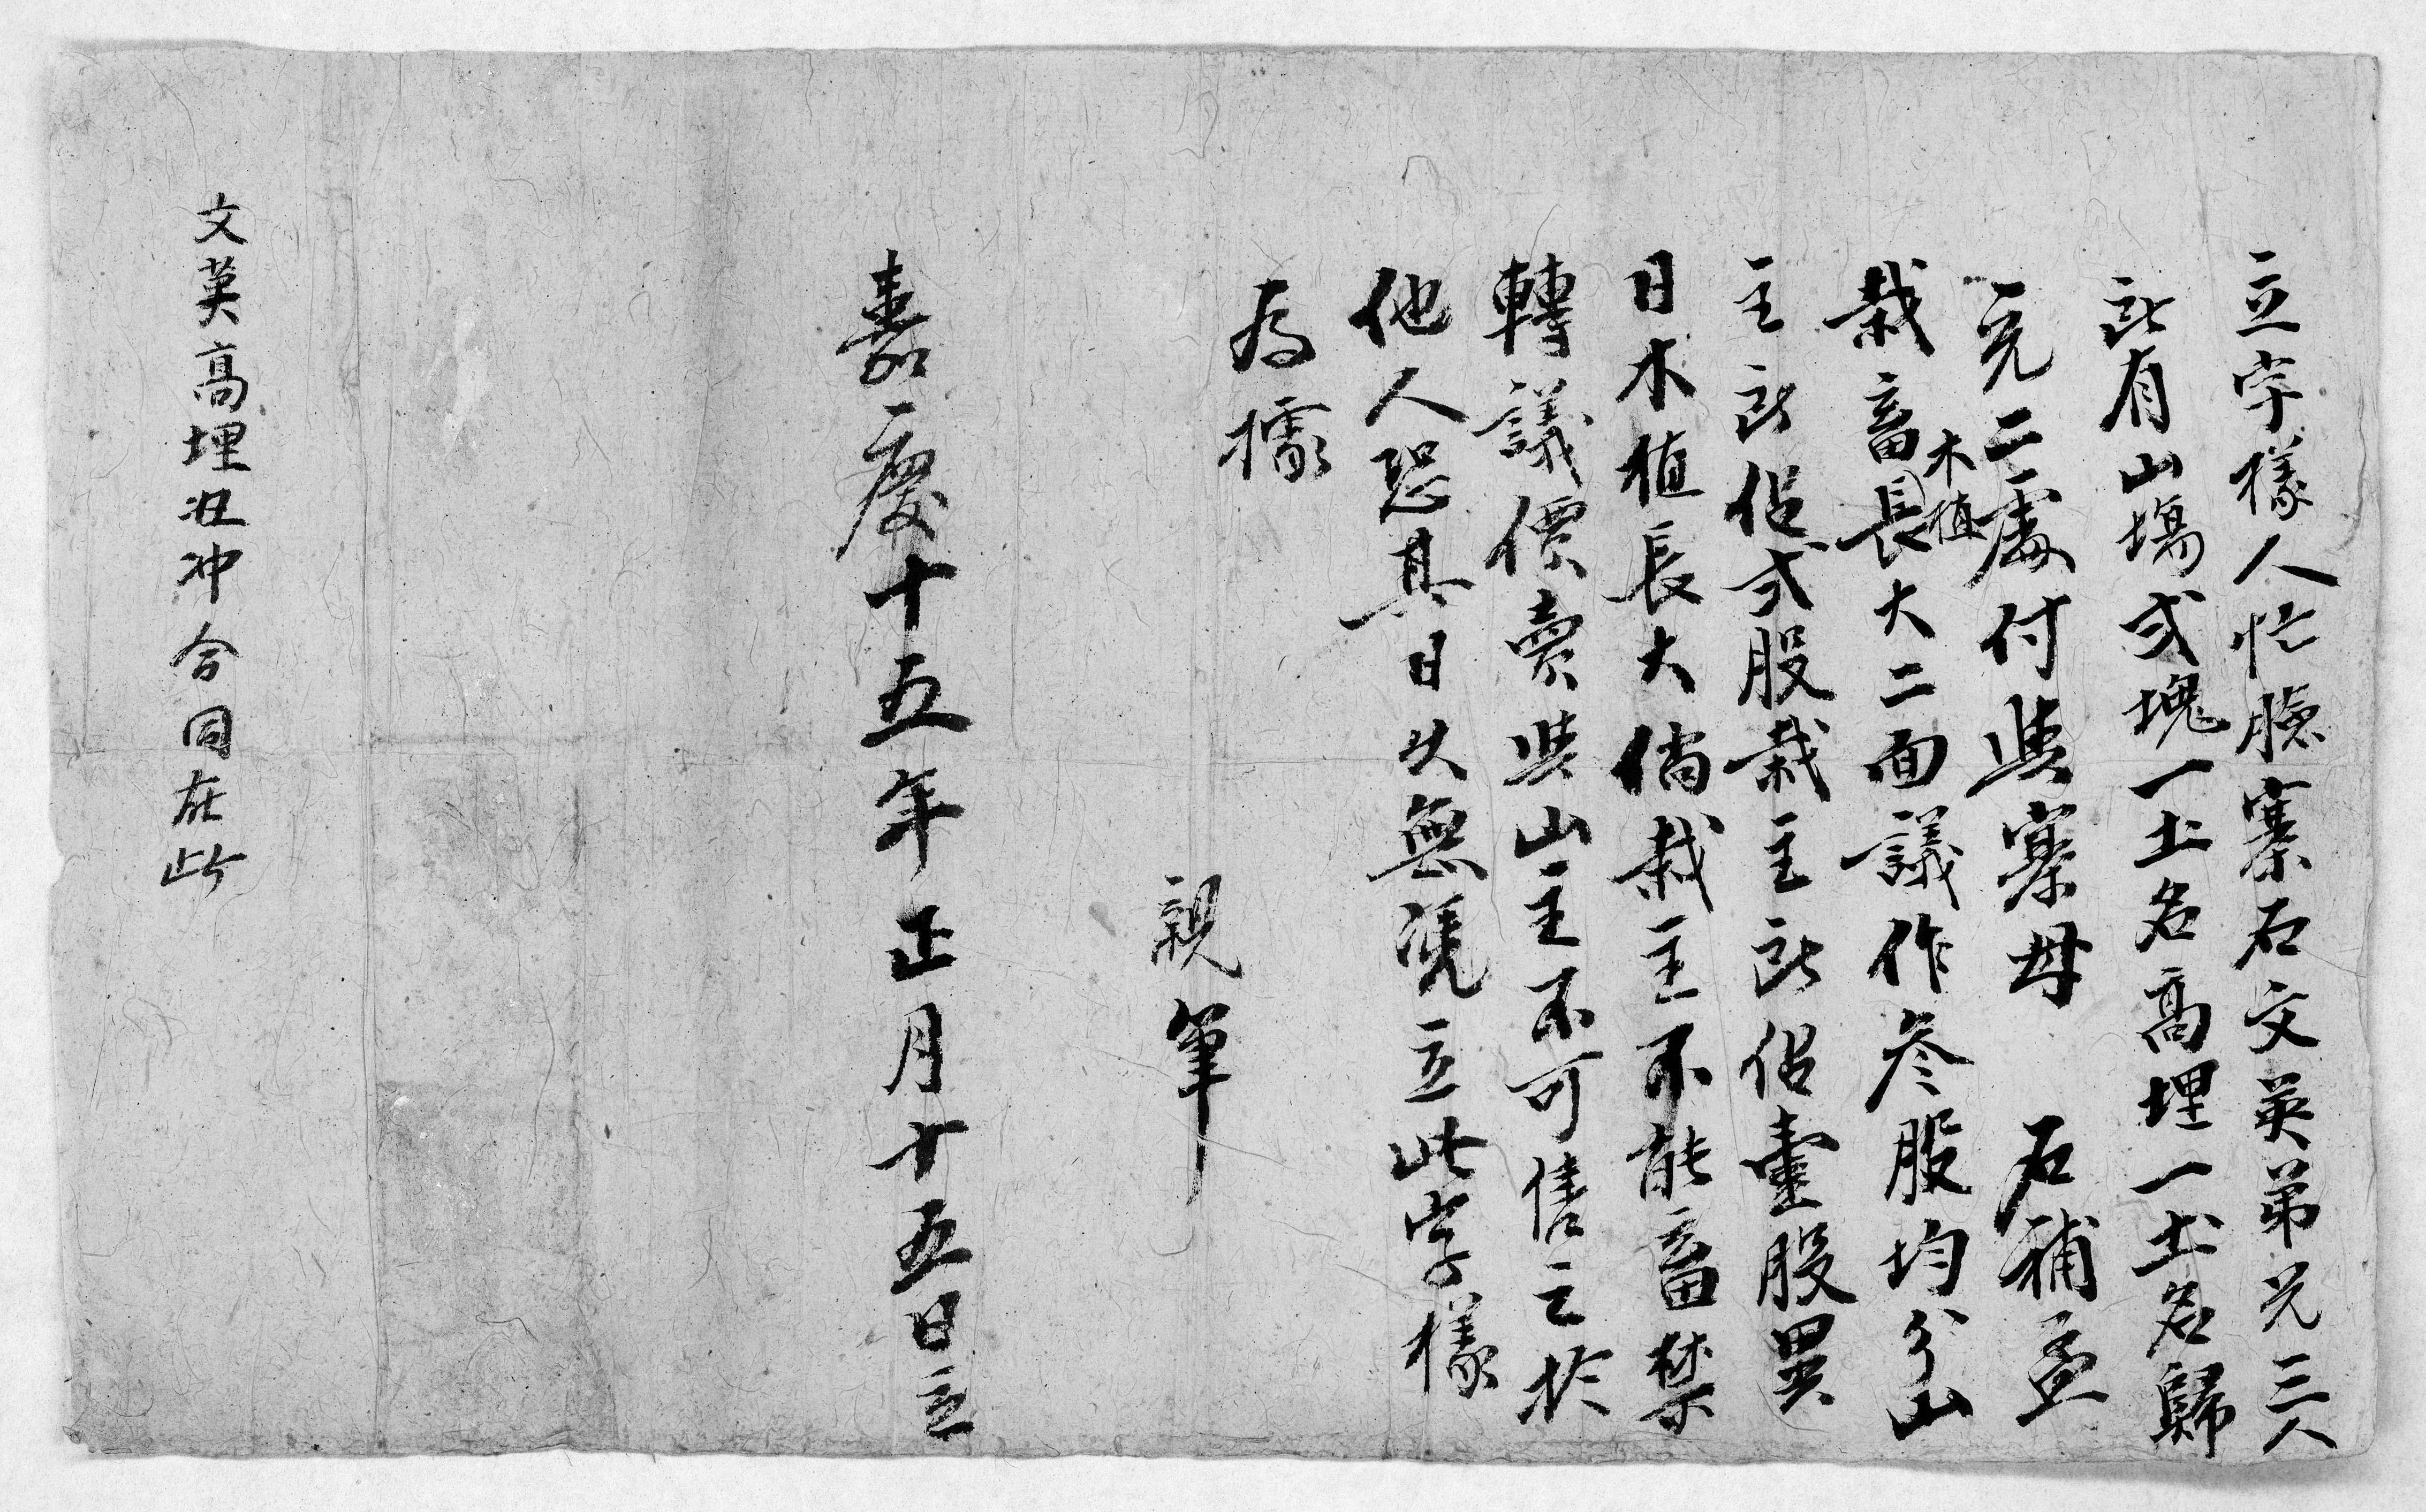 立字樣人忙臉寨石文英弟兄三人
所有山塲弍塊一土名高埋一土名歸
完二處付與寨母　石補孟
栽畜木植長大二面議作叄股均分山
主所佔弍股栽主所佔壹股異
日木植長大倘栽主不能畜禁
轉議價賣與山主不可售之於
他人恐其日久無凴立此字樣
為㯫
親筆
嘉慶十五年正月十五日立
文英高埋冲合同在此